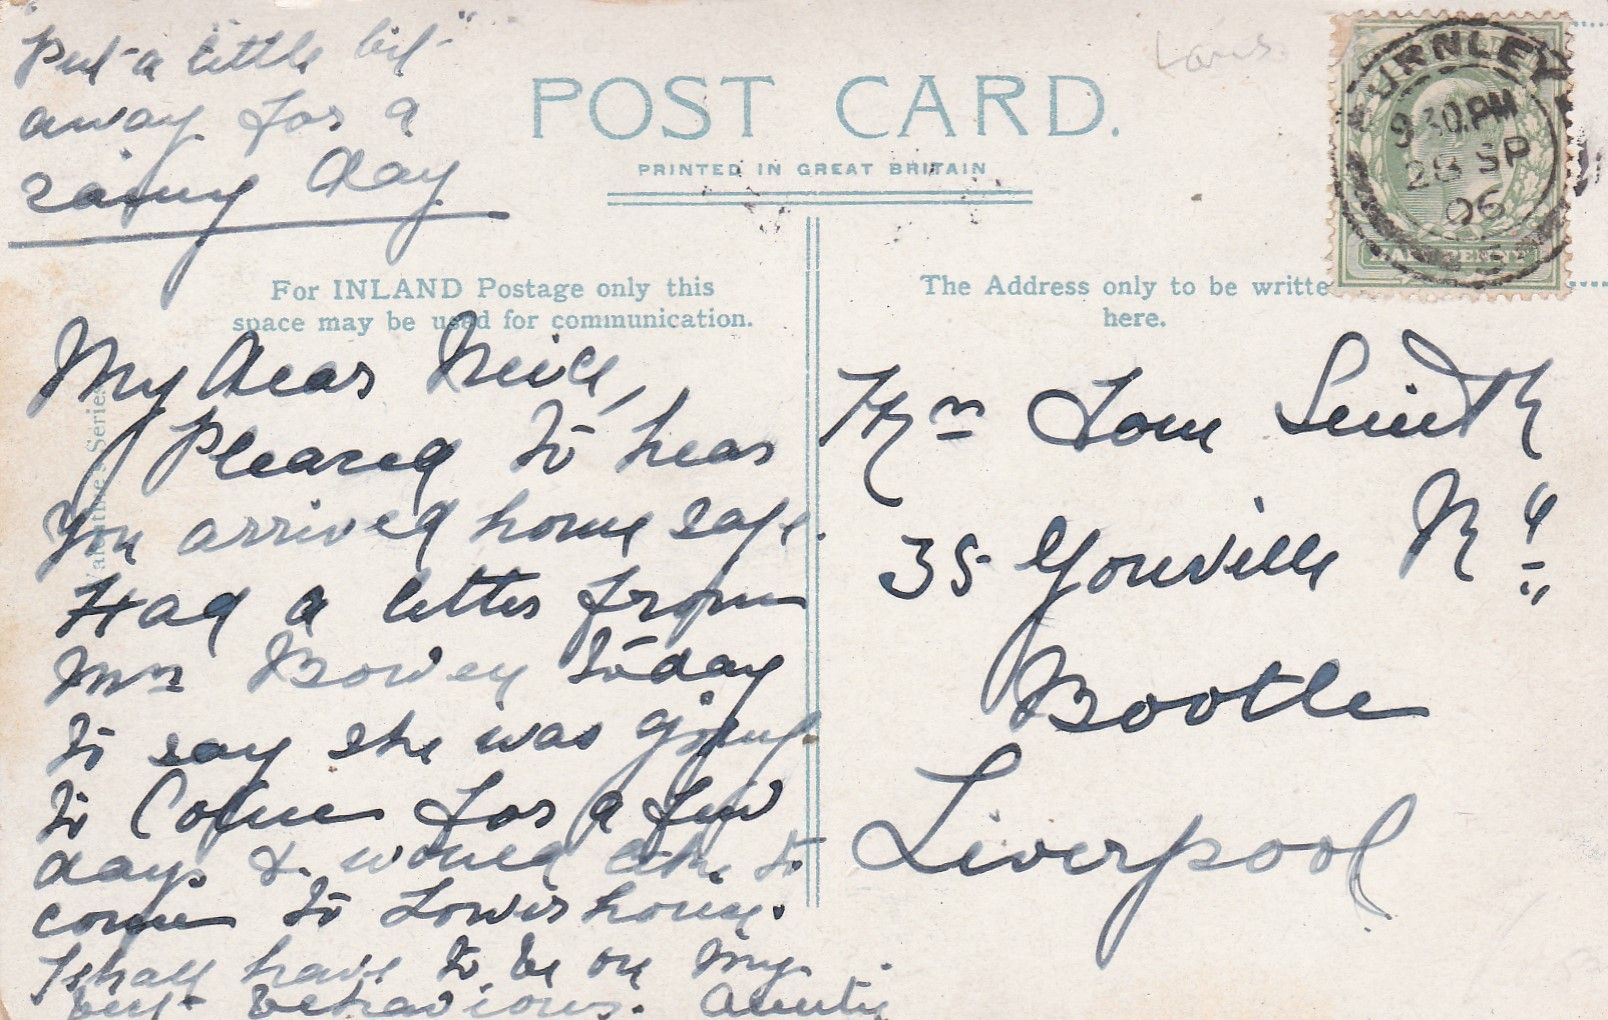 "Put a little bit"
away for a
rainy day
POST CARD.
PRINTED IN GREAT BRITAIN
BURNLEY
9 30.PM
28 SP
06
HALFPENNY
For INLAND Postage only this
space may be used for communication.
The Address only to be writte
here.
Valentine's Series
My dear Neice,
Pleased to hear
you arrived home safe.
Had a letter from
Mrs Bowey today
to say she was going
to come for a few
days & would like to
come to Lowerhouse.
I shall have to be on my
best behaviour. Aunty
Mrs Tom Smith
35 Yonville Rd
Bootle
Liverpool